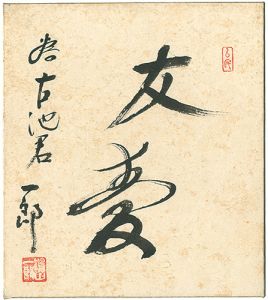 友愛
為古池君
一郎